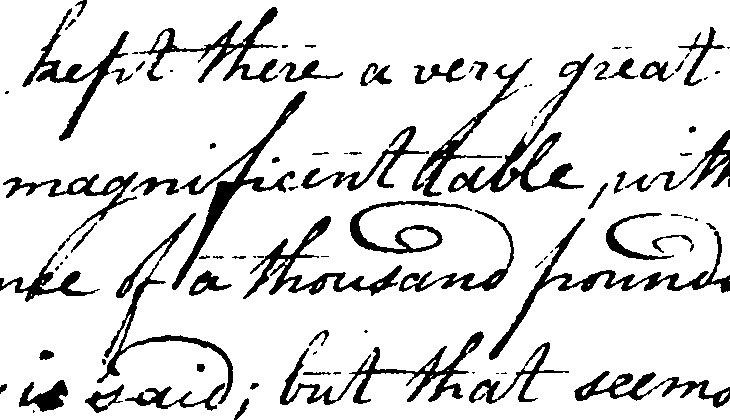 kept there a very great
magnificent table, with
nce of a thousand pounds
is said; but that seems